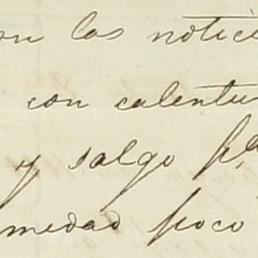 on las notici
con calentu
y salgo pª
medad poco